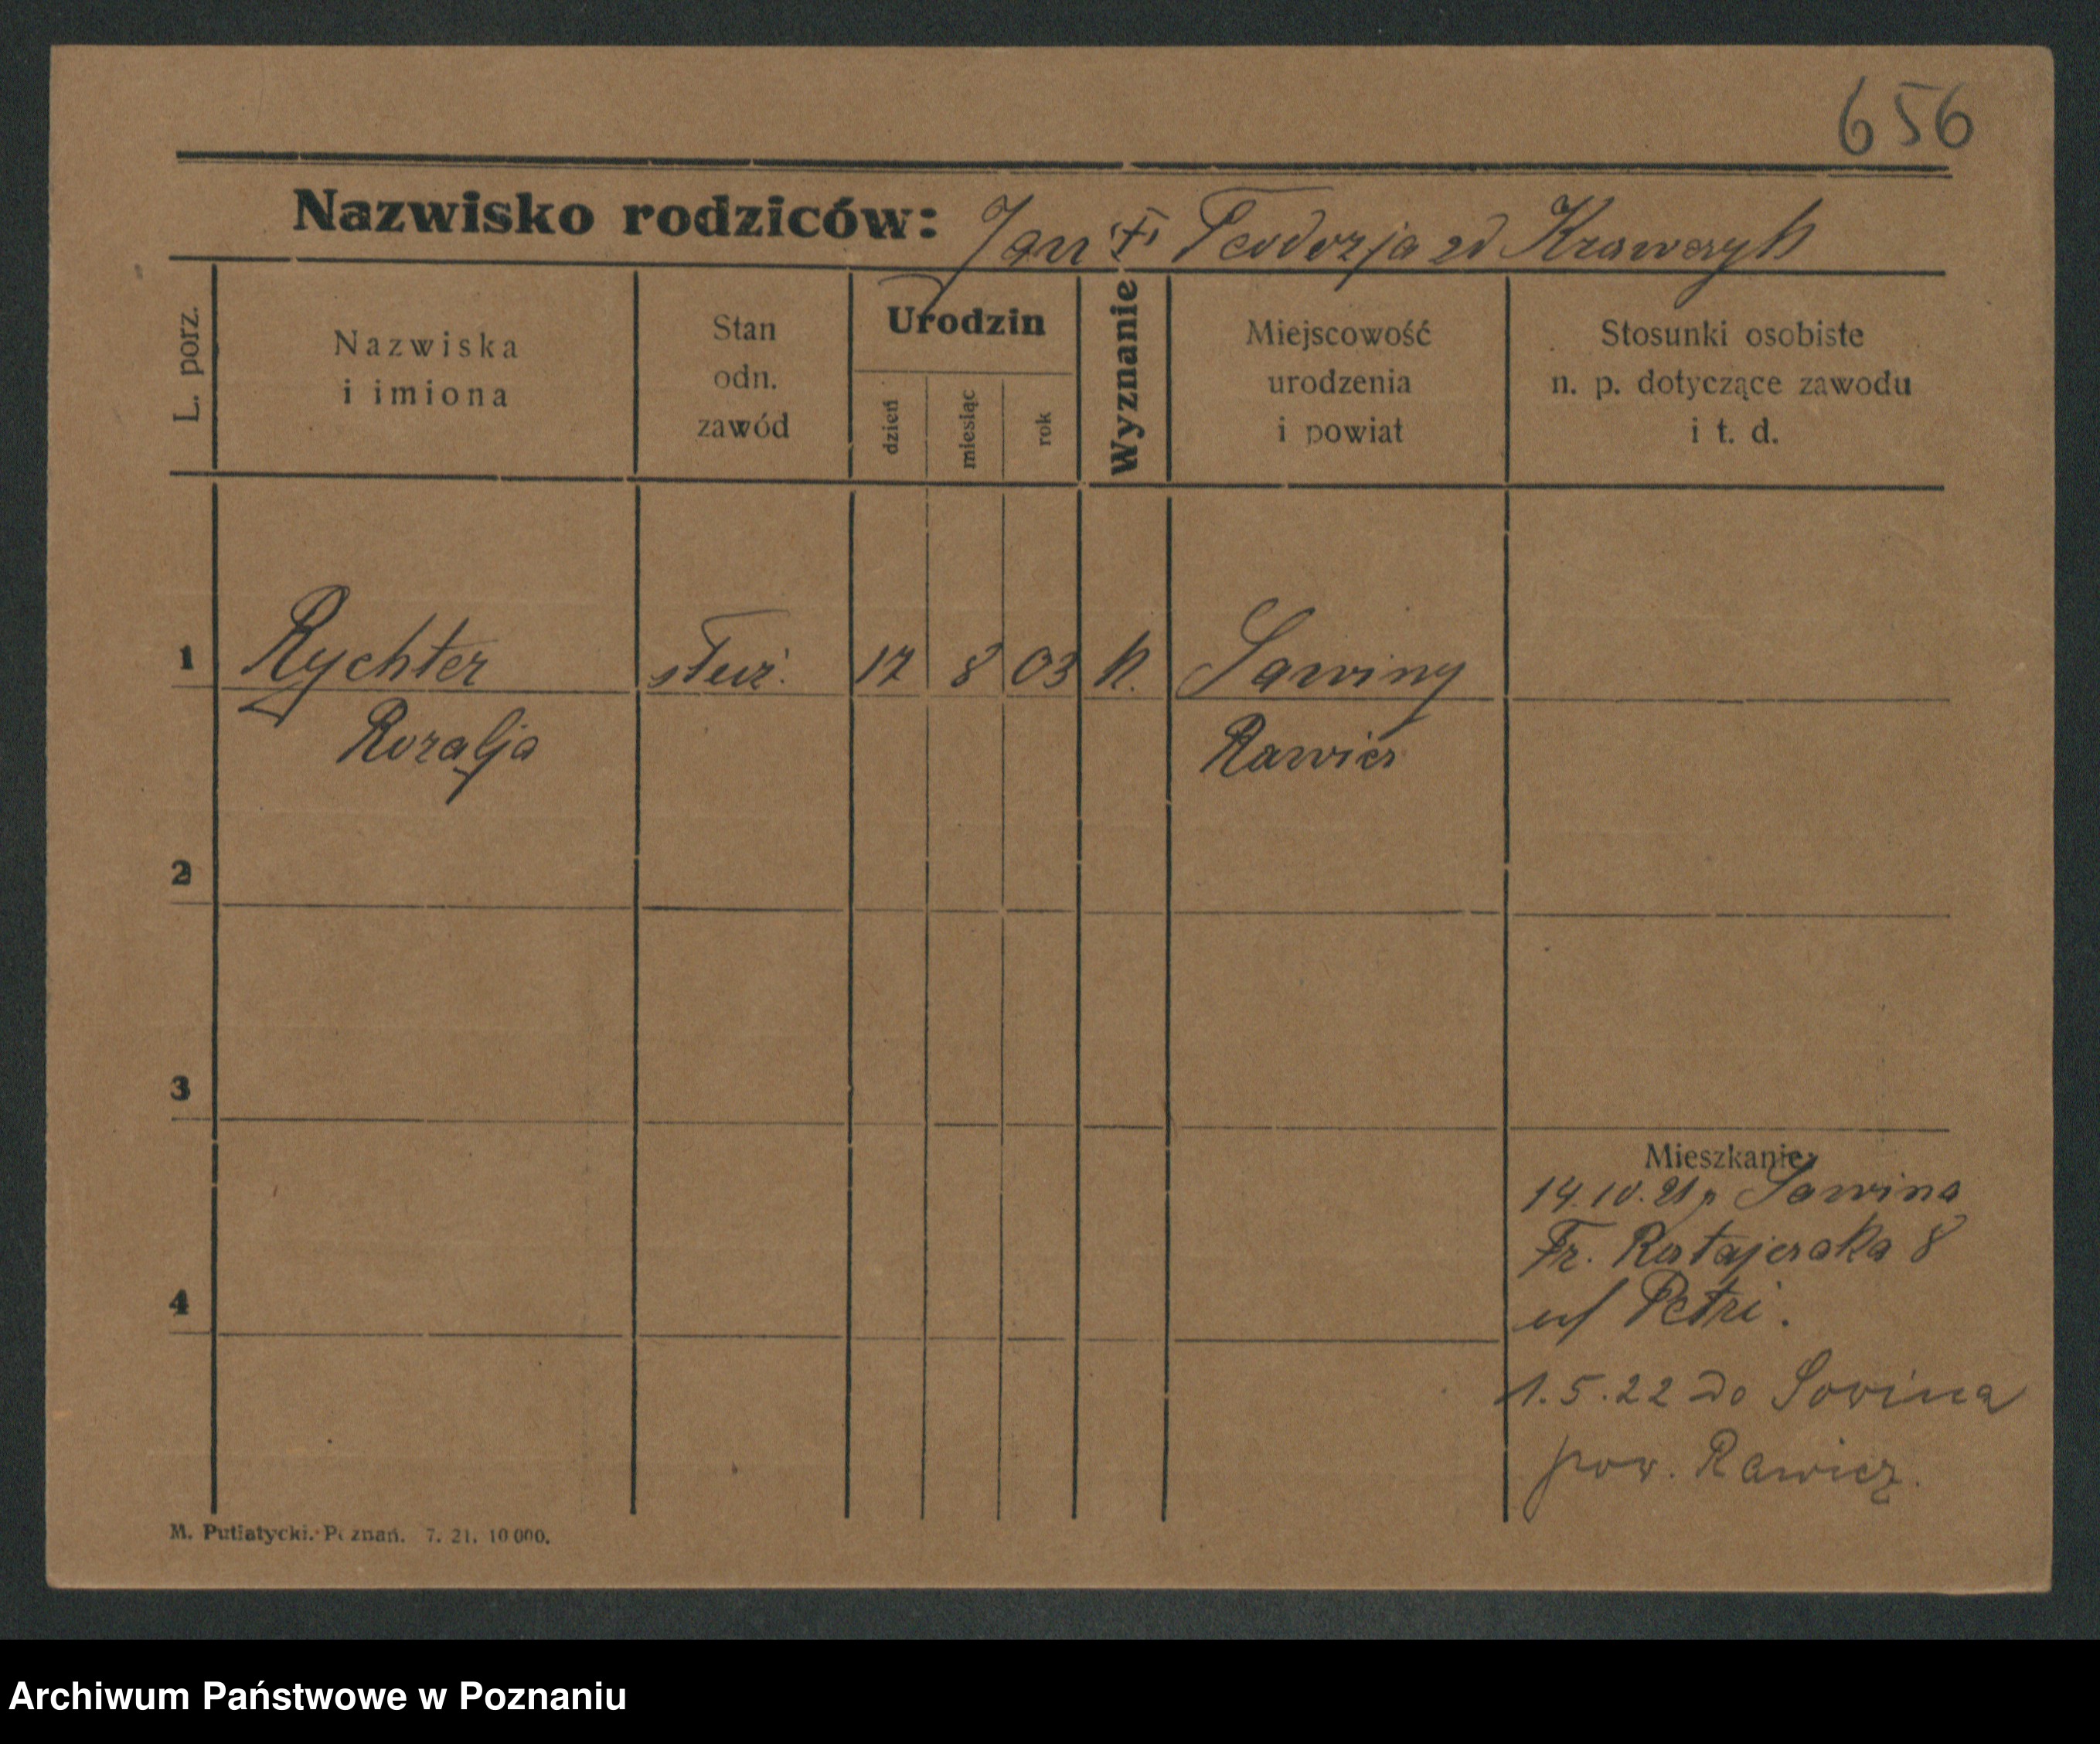 656
Nazwisko rodziców: Jan i Teodozja zd Krawczyk
L. porz.
Nazwiska
i imiona
Stan
odn.
zawód
Urodzin
dzień
miesiąc
rok
Wyznanie
Miejscowość
urodzenia
i powiat
Stosunki osobiste
n. p. dotyczące zawodu
i t. d.
1 Rychter służ. 17 8 03 k. Sawiny
Rozalja Rawicz
2
3
4
Mieszkanie:
14.10.21 Sawina
Fr. Ratajczaka 8
u/ Petri.
1.5.22 do Sowina
pow. Rawicz.
M. Putiatycki. Poznań. 7. 21. 10 000.
Archiwum Państwowe w Poznaniu